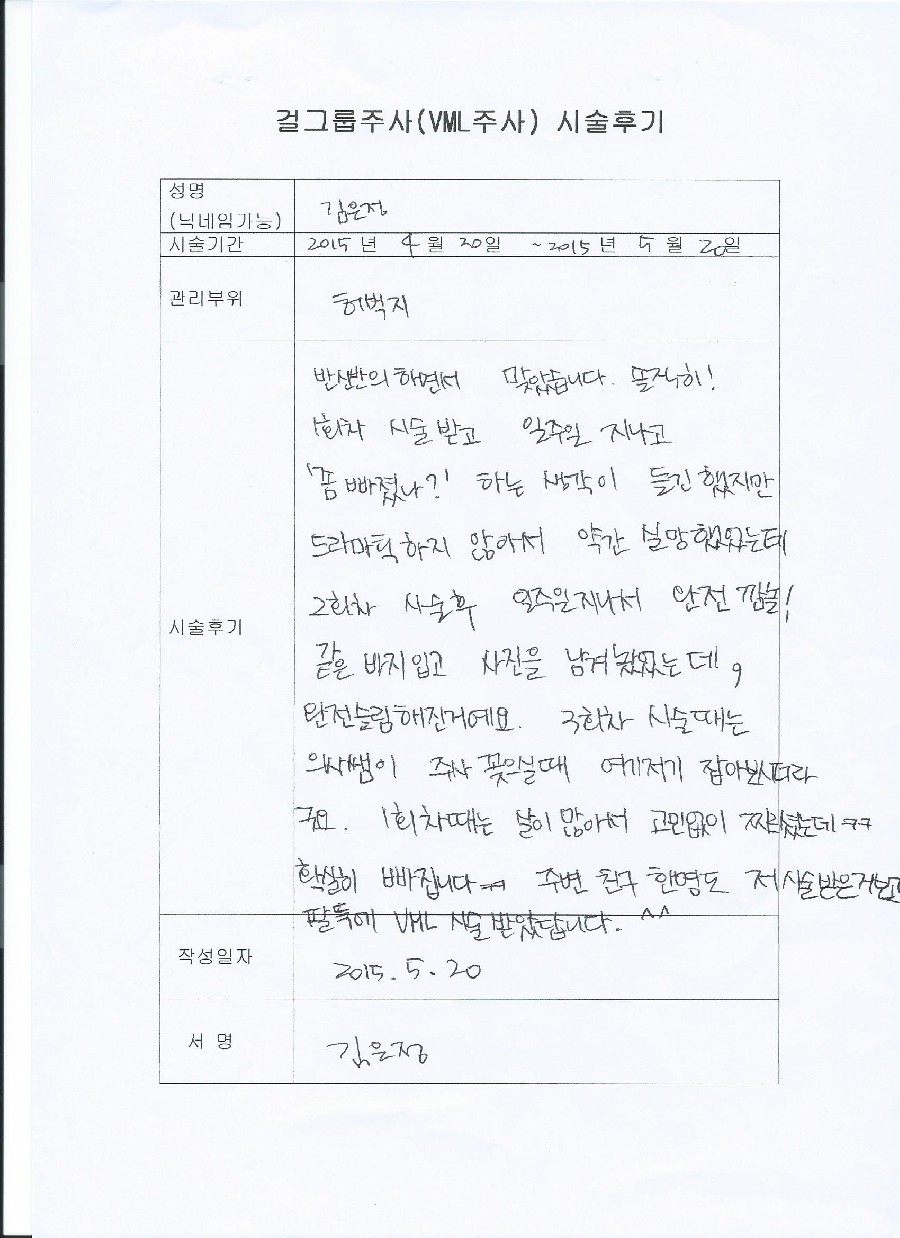 걸그룹주사(VML주사) 시술후기
성명
(닉네임가능)
김은정
시술기간
2015 년 4 월 20일 ~2015 년 5 월 20일
관리부위
허벅지
시술후기
반신반의하면서 맞았습니다. 솔직히!
1회차 시술받고 일주일 지나고
'쫌 빠졌나?' 하는 생각이 들긴했지만
드라마틱하지 않아서 약간 실망했었는데
2회차 시술후 일주일지나서 완전 깜놀!
같은 바지입고 사진을 남겨놨었는데,
완전슬림해진거예요. 3회차 시술때는
의사쌤이 주사 꽂으실때 여기저기 잡아보시더라
구요. 1회차때는 살이 많아서 고민없이 찌르셨는데ㅋㅋ
확실히 빠집니다ㅋㅋ 주변 친구 한명도 저시술받은거보고
팔뚝에 VML 시술받았답니다. ^^
작성일자
2015. 5. 20
서 명
김은정